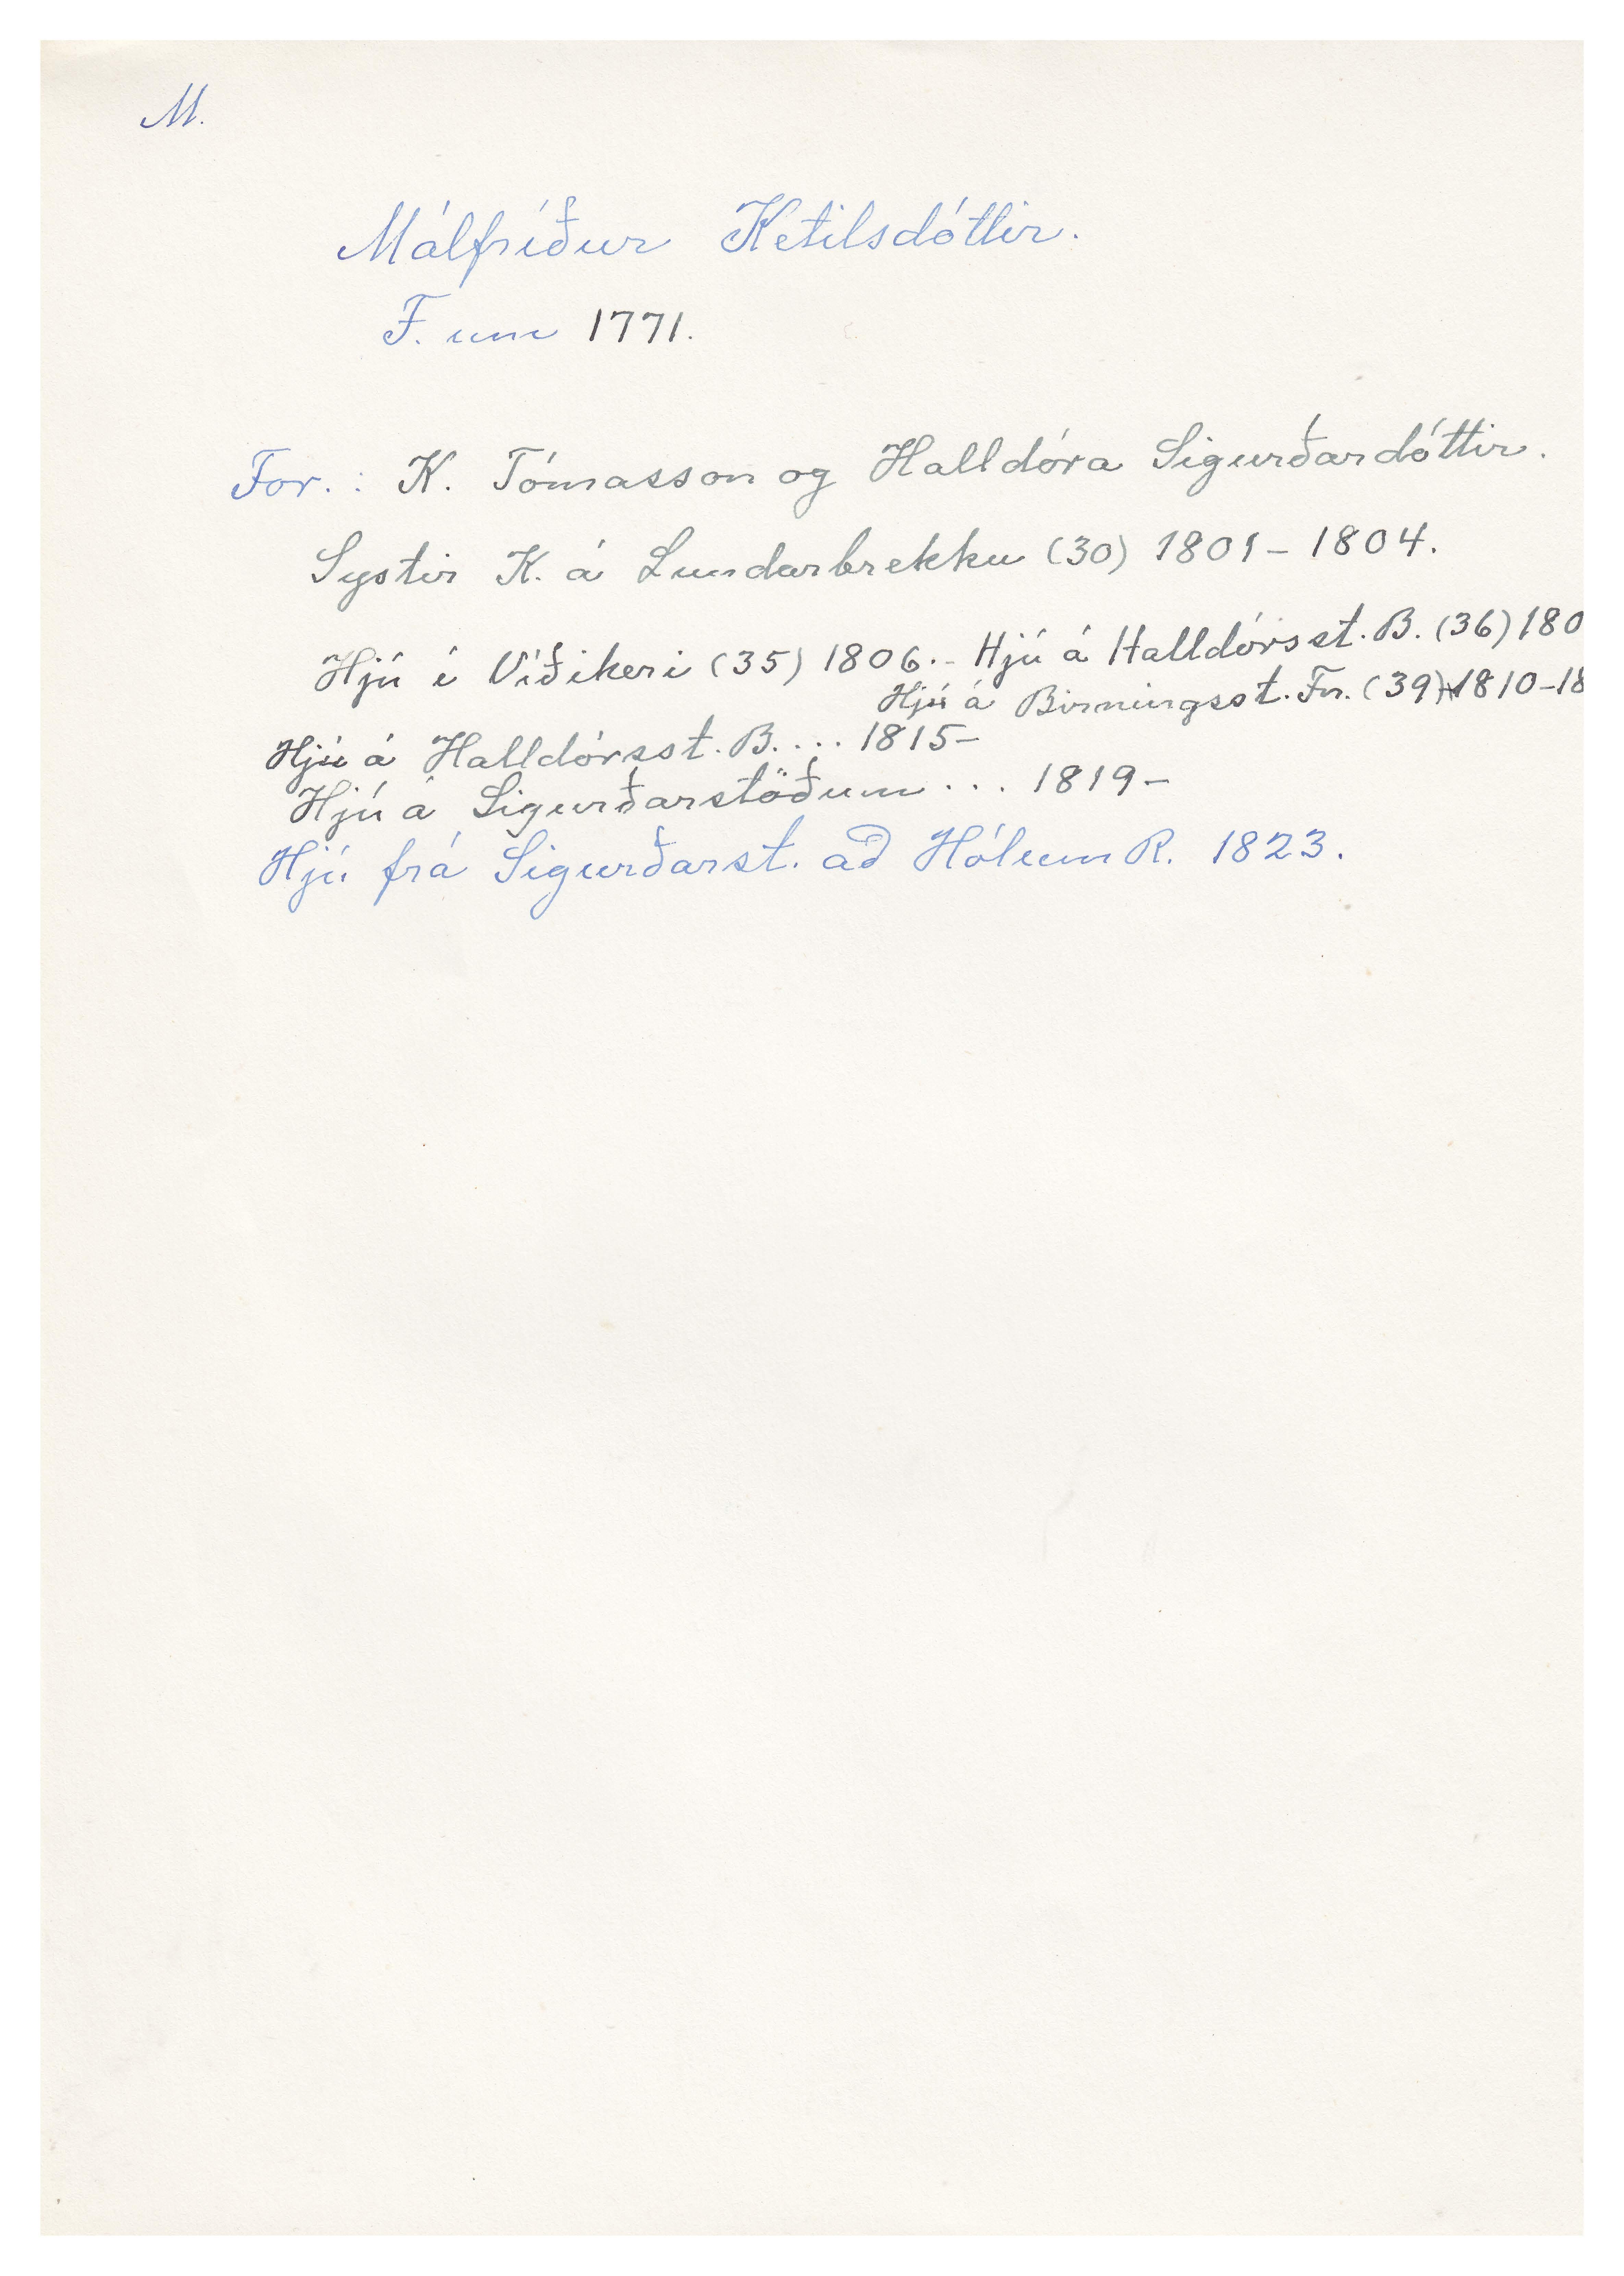 M.
Málfríður Ketilsdóttir.
F. um 1771.
For.: K. Tómasson og Halldóra Sigurðardóttir.
Systir K. á Lundarbrekku (30) 1801-1804.
Hjú í Víðikeri (35) 1806.- Hjú á Halldórsst. B. (36) 180
Hjú á Birningsst. Fn. (39) 1810-18
Hjú á Halldórsst. B. ... 1815-
Hjú á Sigurðarstöðum ... 1819-
Hjú frá Sigurðarst. að Hólum R. 1823.